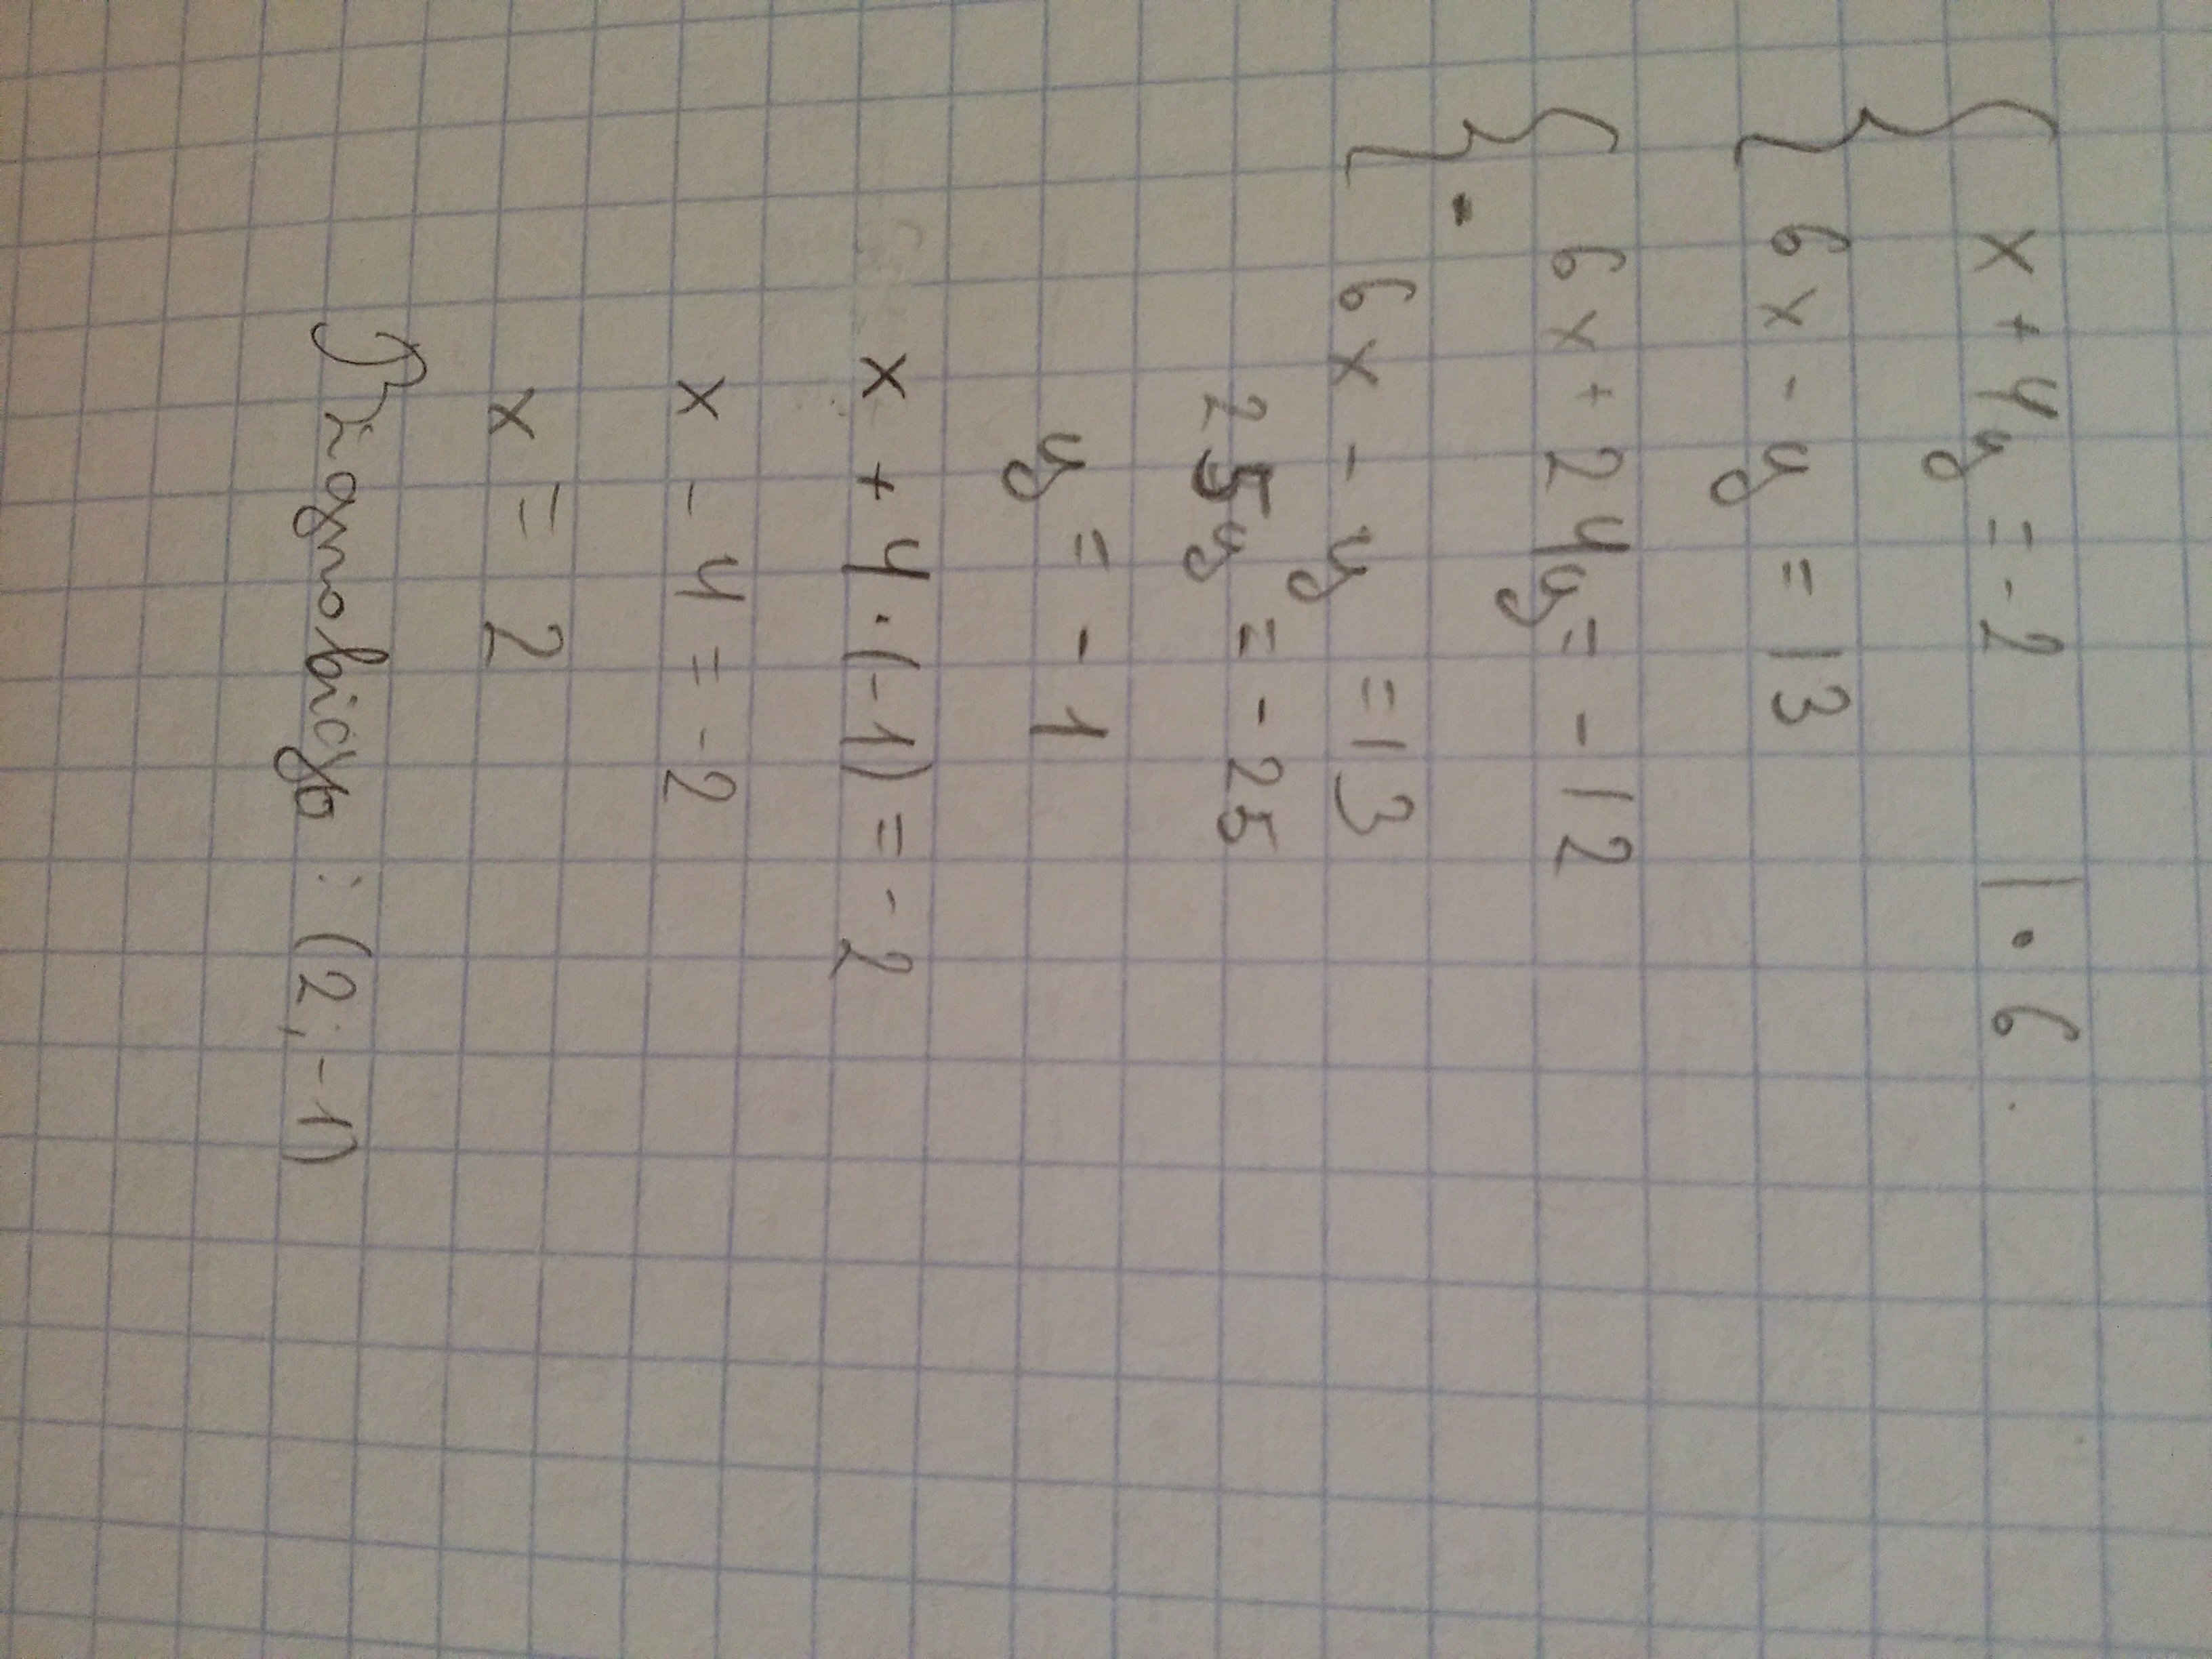 { x + 4y = -2 | · 6
{ 6x - y = 13
{ 6x + 24y = -12
- { 6x - y = 13
25y = -25
y = -1
x + 4 · (-1) = -2
x - 4 = -2
x = 2
: (2; -1)